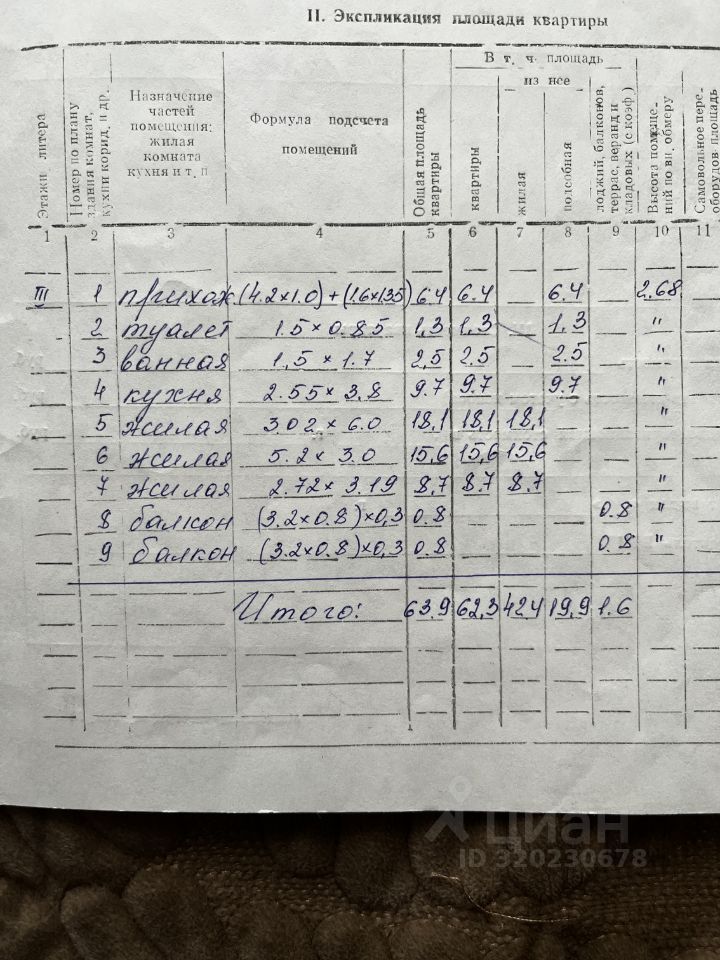 II. Экспликация площади квартиры
Этажи литера
Номер по плану здания комнат, кухни корид, и др.
Назначение частей помещения: жилая комната кухня и т. п
Формула подсчета помещений
Общая площадь квартиры
В т. ч. площадь
из нее
квартиры
жилая
подсобная
лоджий, балконов, террас, веранд и кладовых (с коэф.)
Высота помещений по вн. обмеру
Самовольное переоборудов. площадь
1 2 3 4 5 6 7 8 9 10 11
III 1 прихож (4.2×1.0)+(1.6×1.35) 6.4 6.4 6.4 2.68
2 туалет 1.5×0.85 1,3 1,3 1.3 "
3 ванная 1,5×1.7 2,5 2.5 2.5 "
4 кухня 2.55×3.8 9.7 9.7 9.7 "
5 жилая 3.02×6.0 18,1 18,1 18,1 "
6 жилая 5.2×3.0 15,6 15,6 15,6 "
7 жилая 2.72×3.19 8,7 8.7 8.7 "
8 балкон (3.2×0.8)×0,3 0.8 0.8 "
9 балкон (3.2×0.8)×0,3 0.8 0.8 "
Итого: 63.9 62,3 42.4 19,9 1.6
циан
ID 320230678